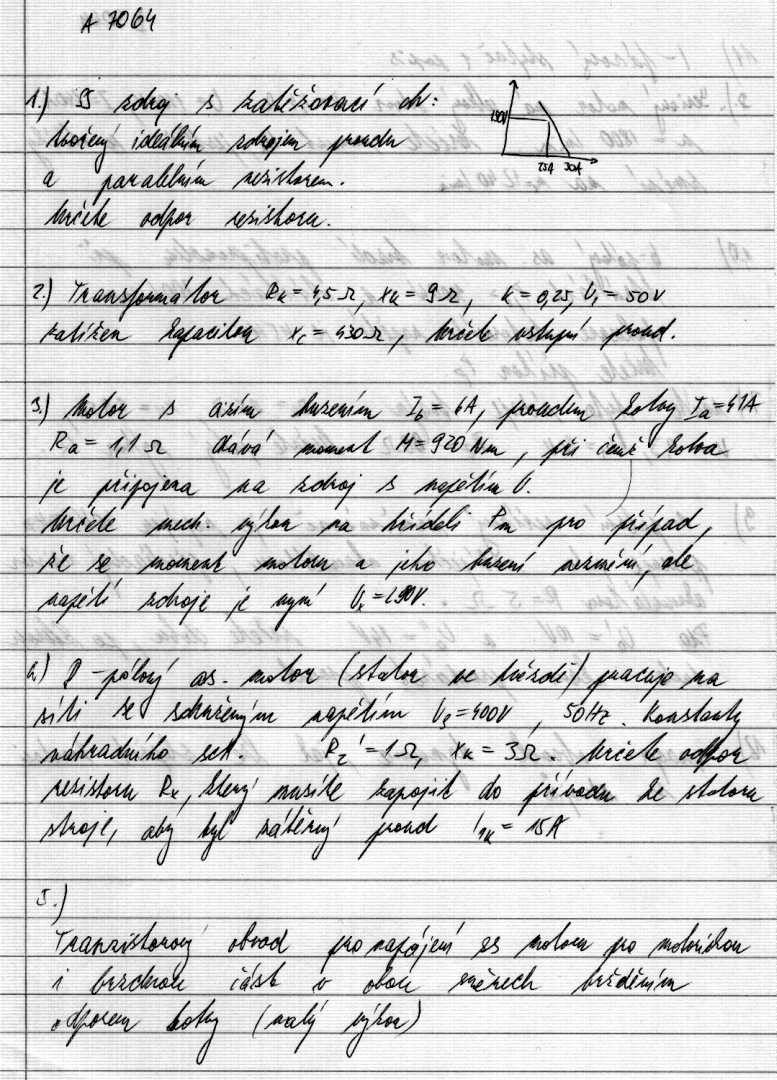 A 7064
1.) SS zdroj s zatěžovací ch:
tvořený ideálním zdrojem proudu
a paralelním rezistorem.
Určete odpor rezistoru.
190V
25A 30A
2.) Transformátor Rk = 4,5 Ω, Xk = 9 Ω, k = 0,25, U1 = 50V
zatížen kapacitou Xc = 430 Ω, Určete vstupní proud.
3.) Motor s cizím buzením Ib = 6A, proudem kotvy Ia = 41A
Ra = 1,1 Ω dává moment M = 920 Nm, při čemž kotva
je připojena na zdroj s napětím U.
Určete mech. výkon na hřídeli Pm pro případ,
že se moment motoru a jeho buzení nezmění, ale
napětí zdroje je nyní Ux = 190V.
4.) -pólový as. motor (stator ve hvězdě) pracuje na
síti se sdruženým napětím Us = 400V, 50Hz. Konstanty
náhradního sch. R2' = 1 Ω, Xk = 3 Ω. Určete odpor
rezistoru Rx, který musíte zapojit do přívodu ke statoru
stroje, aby byl záběrný proud I1k = 15A
5.)
Tranzistorový obvod pro napájení ss motoru pro motorickou
i brzdnou část v obou směrech bržděním
odporem kotvy (malý výkon)